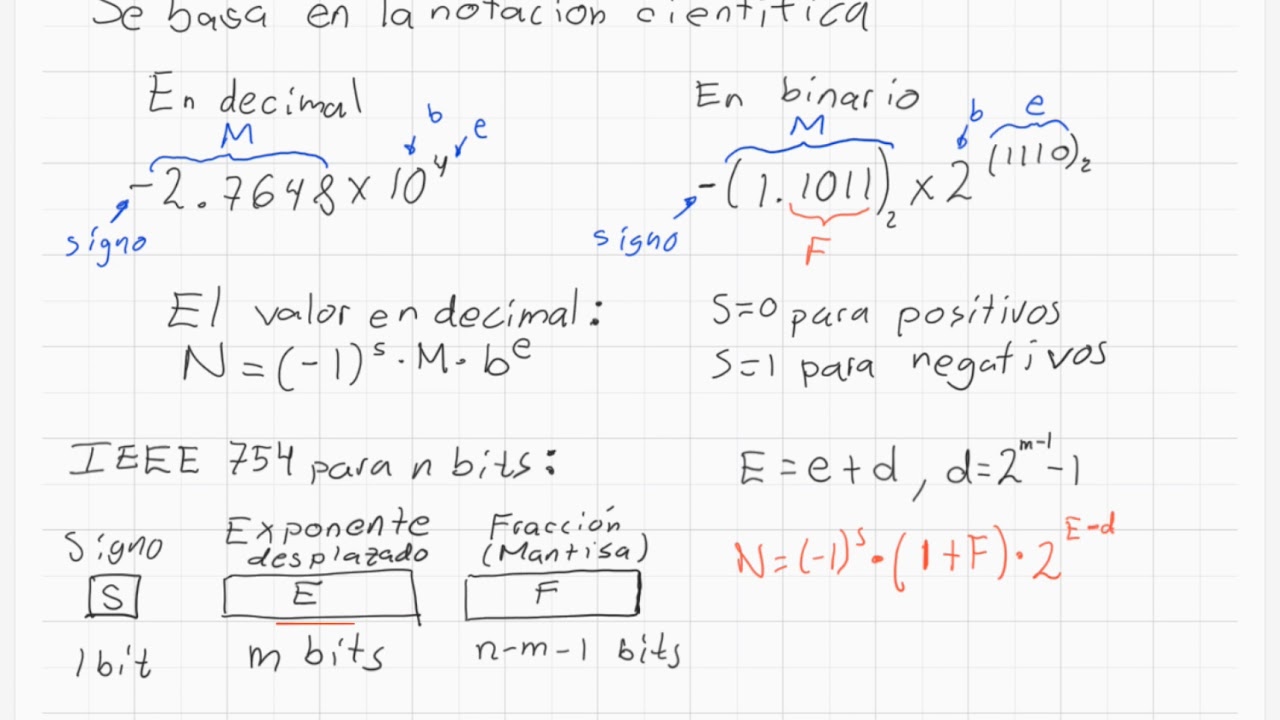 Se basa en la notación científica
En decimal
M
b
e
-2.7648 x 10⁴
signo
En binario
M
b
e
-(1.1011)₂ x 2^(1110)₂
signo
F
El valor en decimal:
N = (-1)^s · M · b^e
S=0 para positivos
S=1 para negativos
IEEE 754 para n bits:
Signo
S
1 bit
Exponente
desplazado
E
m bits
Fracción
(Mantisa)
F
n-m-1 bits
E = e + d, d = 2^(m-1) - 1
N = (-1)^s · (1 + F) · 2^(E-d)